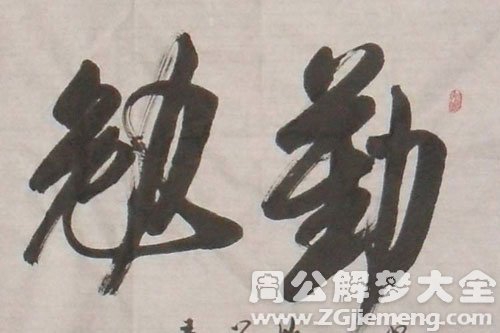 勤勉
周公解梦大全
www.ZGjiemeng.com